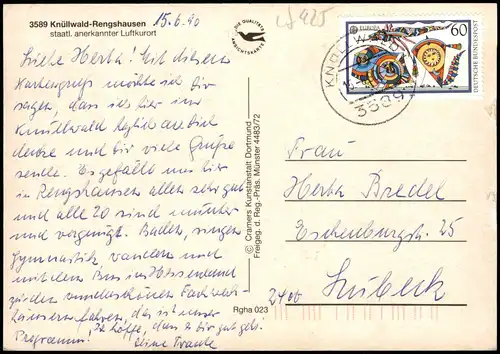 3589 Knüllwald-Rengshausen
staatl. anerkannter Luftkurort
15.6.90
Liebe Herta! Mit diesem
Kartengruß möchte ich Dir
sagen, dass ich hier im
Knüllwald herzlich an Dich
denke und Dir viele Grüße
sende. Es gefällt uns hier
in Rengshausen allen sehr gut
und alle 20 sind munter
und vergnügt. Baden, singen
Gymnastik, wandern und
mit dem Bus ins Hessenland
zu den wunderschönen Fachwerk-
häusern fahren, das ist unser
Programm! Ich hoffe, dass es Dir gut geht.
Deine Traute
DIE QUALITÄTS
ANSICHTSKARTE
© Cramers Kunstanstalt Dortmund
Freigeg. d. Reg.-Präs. Münster 4483/72
Rgha 023
EUROPA
60
DEUTSCHE BUNDESPOST
KNÜLLWALD
3589
Frau
Herta Bredel
Eschenburgstr. 25
2400 Lübeck